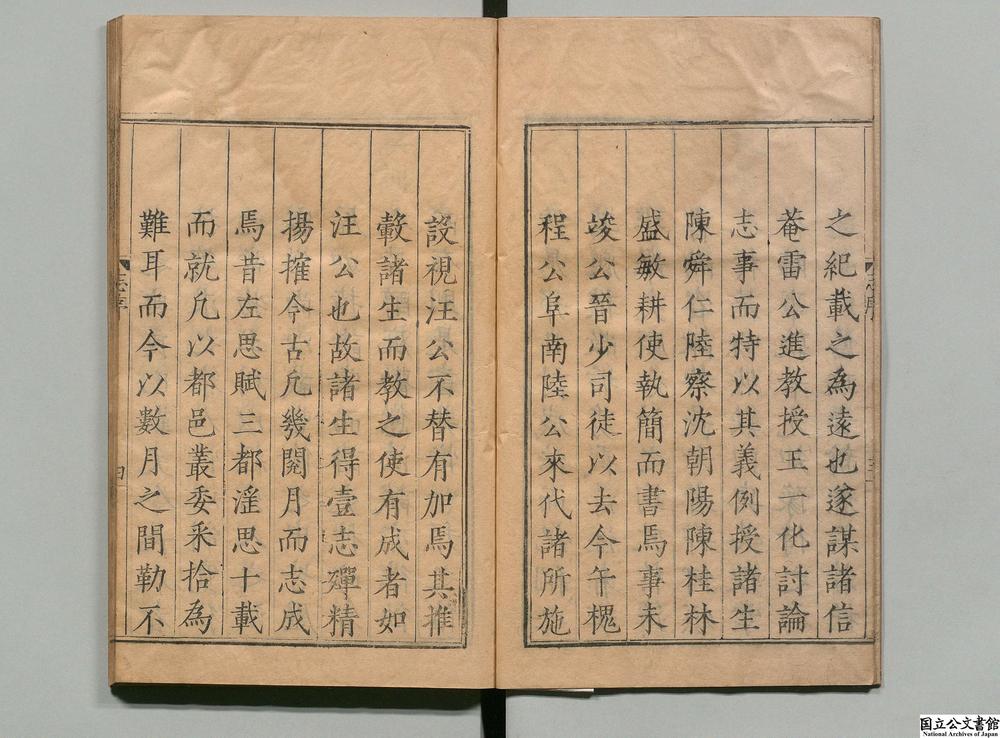 之紀載之為遠也遂謀諸信
菴雷公進教授王一化討論
志事而特以其義例授諸生
陳舜仁陸察沈朝陽陳桂林
盛敏耕使執簡而書焉事未
竣公晉少司徒以去今午槐
程公阜南陸公來代諸所施
設視汪公不替有加焉其推
轂諸生而教之使有成者如
汪公也故諸生得壹志殫精
揚搉今古凡幾閱月而志成
焉昔左思賦三都淫思十載
而就凡以都邑叢委釆拾為
難耳而今以數月之間勒不
志序
四
国立公文書館
National Archives of Japan